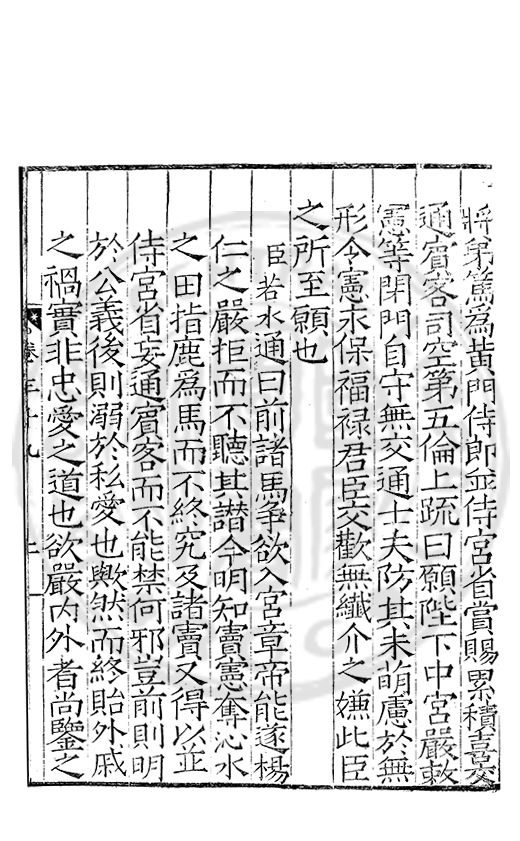 將第篤為黄門侍郎並侍宫省賞賜累積喜交
通賓客司空第五倫上䟽曰願陛下中宫嚴敕
憲等閉門自守無交通士夫防其未萌慮於無
形令憲永保福禄君臣交歡無纖介之嫌此臣
之所至願也
臣若水通曰前諸馬争欲入宫章帝能遂楊
仁之嚴拒而不聽其譖今明知竇憲奪沁水
之田指鹿爲馬而不終究及諸竇又得以並
侍宫省妄通賓客而不能禁何邪豈前則明
於公義後則溺於私愛也歟然而終貽外戚
之禍實非忠愛之道也欲嚴内外者尚鑒之
卷三十九